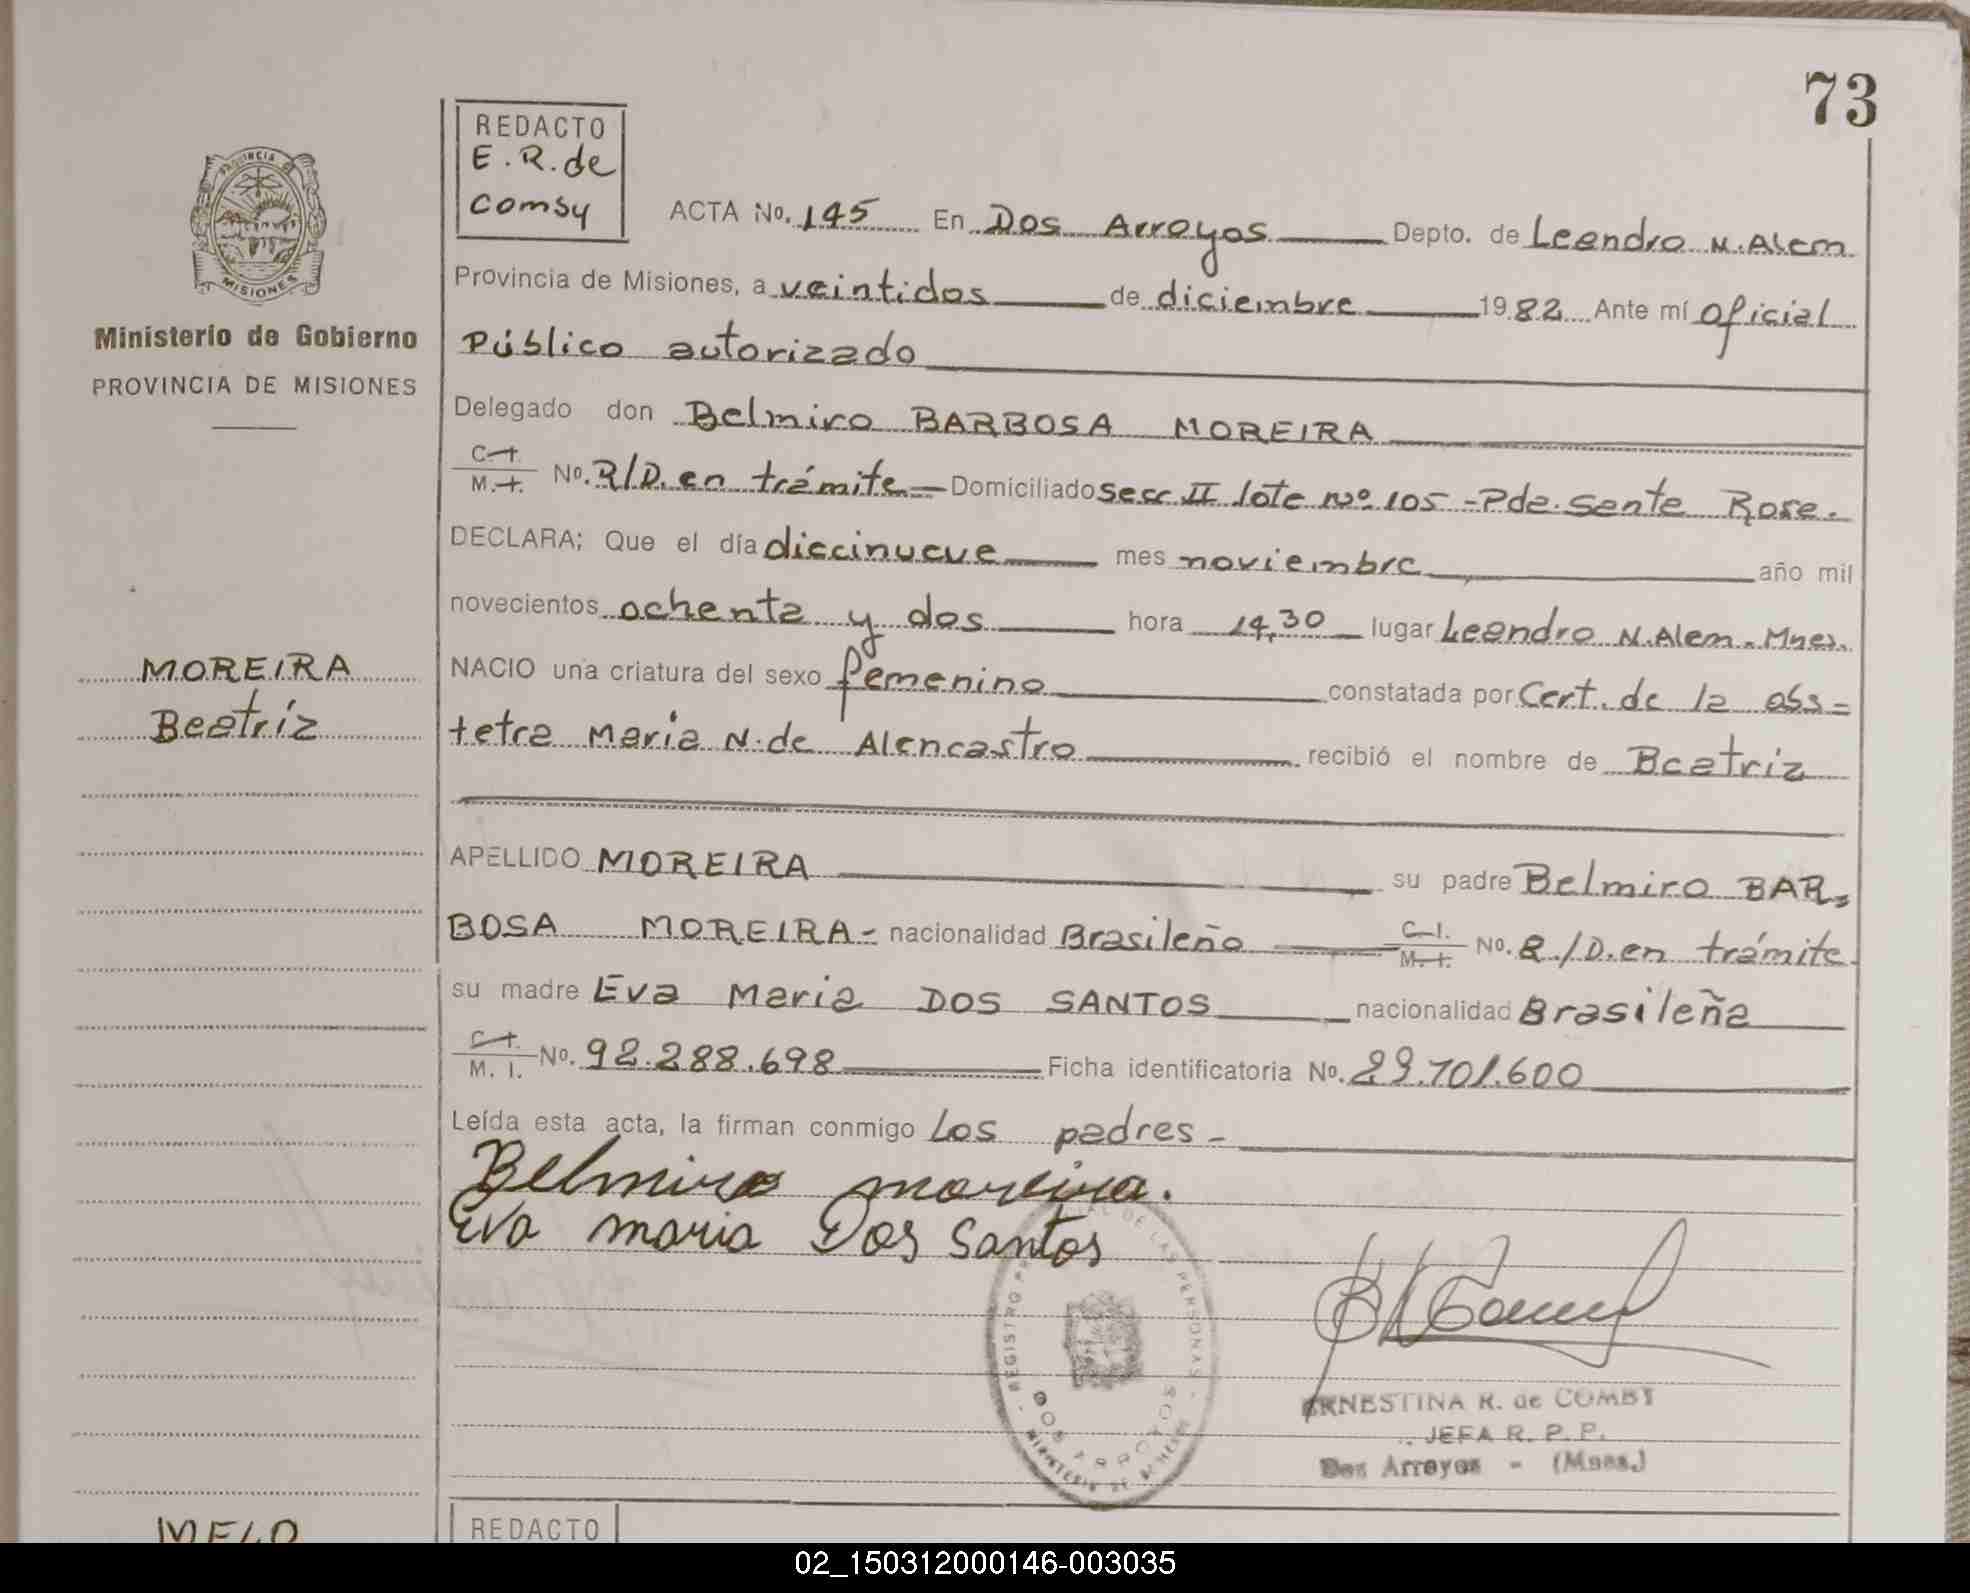 73
REDACTO
E. R. de
comby
PROVINCIA DE
MISIONES
Ministerio de Gobierno
PROVINCIA DE MISIONES
ACTA No. 145 En Dos Arroyos Depto. de Leandro N. Alem
Provincia de Misiones, a veintidos de diciembre 1982 Ante mí oficial
Público autorizado
Delegado don Belmiro BARBOSA MOREIRA
C.I. M.I. No. R/D. en trámite - Domiciliado secc II lote Nº 105 - Pda. Santa Rosa.
DECLARA; Que el día diecinueve mes noviembre año mil
novecientos ochenta y dos hora 14,30 lugar Leandro N. Alem - Mnes.
MOREIRA
Beatríz
NACIO una criatura del sexo femenino constatada por Cert. de la obs=
tetra Maria N. de Alencastro recibió el nombre de Beatriz
APELLIDO MOREIRA su padre Belmiro BAR=
BOSA MOREIRA - nacionalidad Brasileño C.I. M.I. No. R/D. en trámite
su madre Eva Maria DOS SANTOS nacionalidad Brasileña
C.I. M. I. No. 92.288.698 Ficha identificatoria No. 29.701.600
Leída esta acta, la firman conmigo Los padres -
Belmiro moreira.
Eva maria Dos Santos
REGISTRO PROVINCIAL DE LAS PERSONAS
DOS ARROYOS
ERNESTINA R. de COMBY
JEFA R. P. P.
Dos Arroyos - (Mnes.)
MELO
REDACTO
02_150312000146-003035